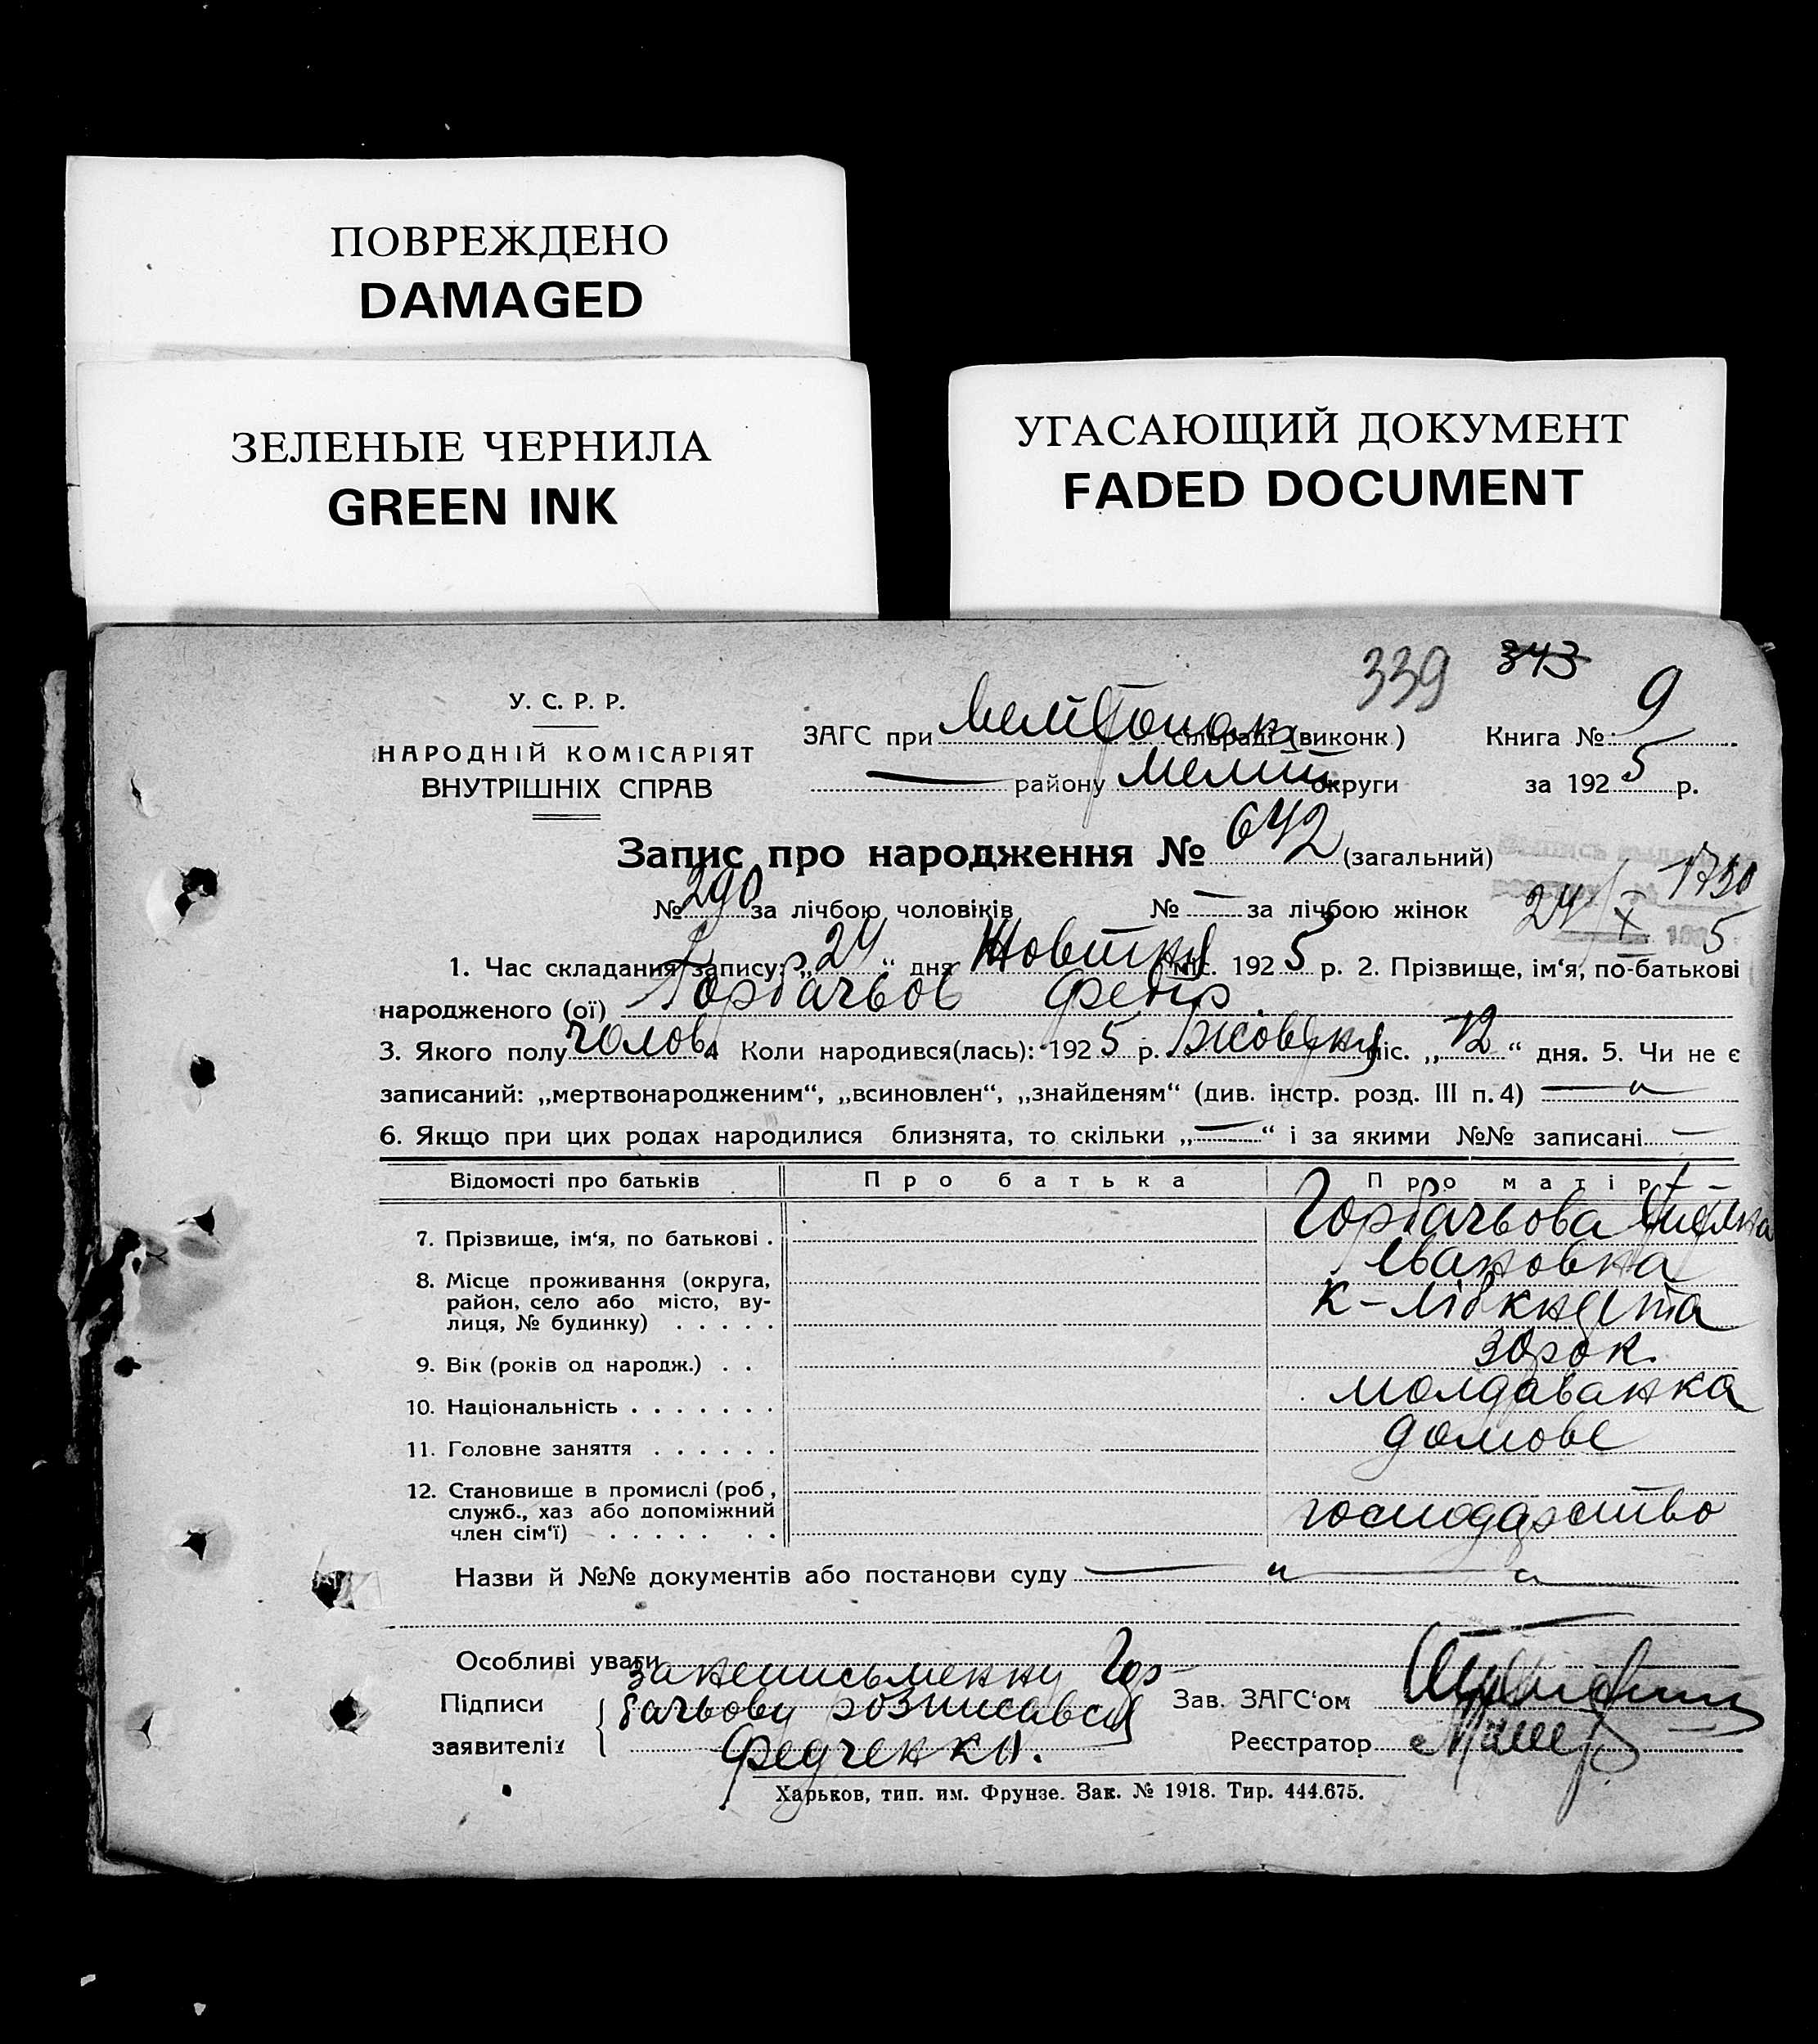 ПОВРЕЖДЕНО
DAMAGED
ЗЕЛЕНЫЕ ЧЕРНИЛА
GREEN INK
УГАСАЮЩИЙ ДОКУМЕНТ
FADED DOCUMENT
339 343
У. С. Р. Р.
НАРОДНІЙ КОМІСАРІЯТ
ВНУТРІШНІХ СПРАВ
ЗАГС при сільраді (виконк.)
району Меліт округи
Книга № 9
за 1925 р.
Запис про народження № 642 (загальний)
№ 290 за лічбою чоловіків № — за лічбою жінок
1730
24/X 5
1. Час складання запису: „24“ дня Жовтня міс. 1925 р. 2. Прізвище, ім‘я, по-батькові
народженого (ої) Горбачьов Федір
3. Якого полу голов. 4 Коли народився(лась): 1925 р. Жовтня міс. „12“ дня. 5. Чи не є
записаний: „мертвонародженим“, „всиновлен“, „знайденям“ (див. інстр. розд. III п. 4) — „
6. Якщо при цих родах народилися близнята, то скільки „—“ і за якими №№ записані —
Відомості про батьків Про батька Про матір
7. Прізвище, ім‘я, по батькові . Горбачьова
Івановна
8. Місце проживання (округа,
район, село або місто, ву-
лиця, № будинку) . . . . .
к-лібкнехта
9. Вік (років од народж.) . . 30 рок.
10. Національність . . . . . . . молдаванка
11. Головне заняття . . . . . . домове
12. Становище в промислі (роб.,
служб., хаз або допоміжний
член сім‘ї) . . . . . . .
господарство
Назви й №№ документів або постанови суду — „ — „
Особливі уваги
Підписи
заявителів
за неписьменну Гор-
бачьову розписався
Федченко.
Зав. ЗАГС‘ом
Реєстратор
Харьков, тип. им. Фрунзе. Зак. № 1918. Тир. 444.675.